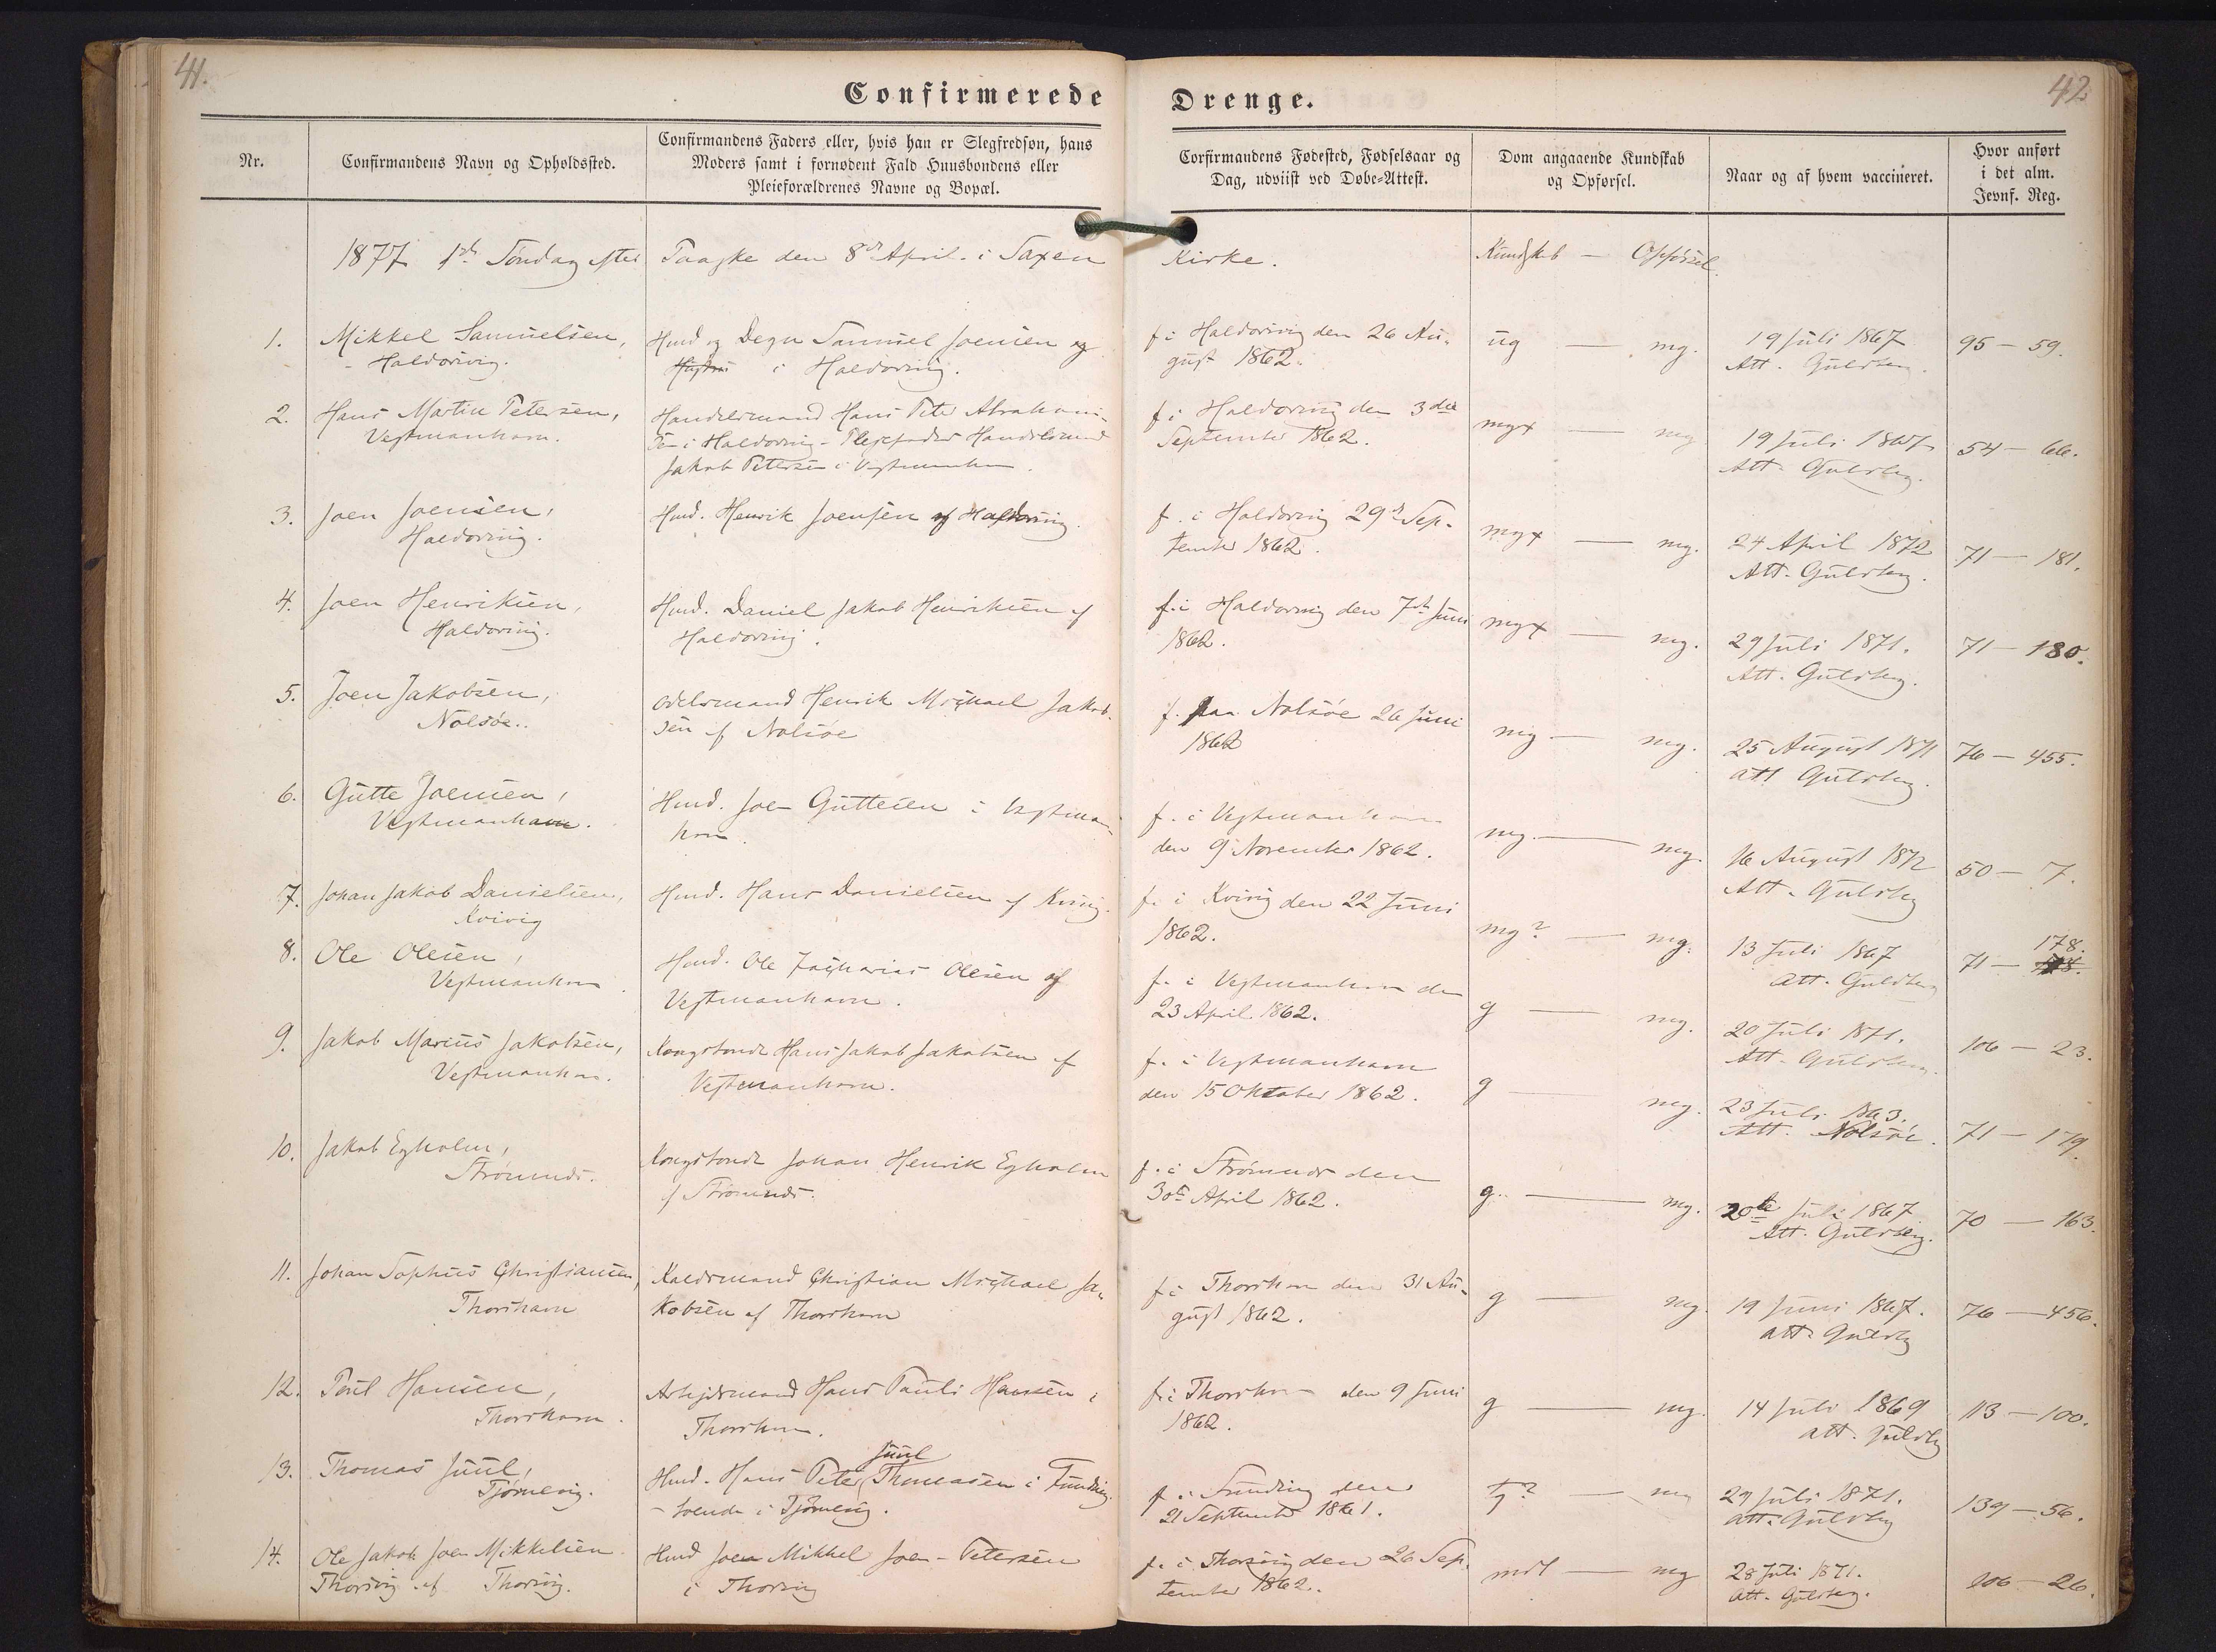 41.
42
Confirmerede Drenge.
Nr.
Confirmandens Navn og Opholdssted.
Confirmandens Faders eller, hvis han er Slegfredsøn, hans
Moders samt i fornødent Fald Huusbondens eller
Pleieforældrenes Navne og Bopæl.
Corfirmandens Fødested, Fødselsaar og
Dag, udviist ved Døbe-Attest.
Dom angaaende Kundskab
og Opførsel.
Naar og af hvem vaccineret.
Hvor anført
i det alm.
Jevnf. Reg.
1877 1ste Søndag efter Paaske den 8de April i Saxen Kirke. Kundskab — Opførsel.
1. Mikkel Samuelsen,
Haldorsvig.
Hmd og Degn Samuel Joensen og
Hustru i Haldorsvig.
f. i Haldorsvig den 26 Au-
gust 1862.
ug — mg.
19 Juli 1867
Att. Guldberg.
95 — 59.
2. Hans Martin Petersen,
Vestmanhavn.
Handelsmand Hans Peter Abraham-
sen i Haldorsvig - Plejefader Handelsmand
Jakob Petersen i Vestmanhavn.
f. i Haldorsvig den 3die
September 1862.
mg+ — mg
19 Juli 1867
Att. Guldberg.
54 — 66.
3. Joen Joensen,
Haldorsvig.
Hmd. Henrik Joensen af Haldorsvig.
f. i Haldorsvig 29de Sep-
tember 1862.
mg+ — mg.
24 April 1872
Att. Guldberg.
71 — 181.
4. Joen Henriksen,
Haldorsvig.
Hmd. Daniel Jakob Henriksen af
Haldorsvig.
f. i Haldorsvig den 7de Juni
1862.
mg+ — mg.
29 Juli 1871.
Att. Guldberg.
71 — 180.
5. Joen Jakobsen,
Nolsøe.
Odelsmand Henrik Michael Jakob-
sen af Nolsøe
f. paa Nolsøe 26 Juni
1862
mg — mg.
25 August 1871
att Guldberg.
76 — 455.
6. Gutte Joensen,
Vestmanhavn.
Hmd. Joen Guttesen i Vestman-
havn.
f. i Vestmanhavn
den 9 November 1862.
mg. — mg.
16 August 1872
Att. Guldberg
50 — 7.
7. Johan Jakob Danielsen,
Kvivig
Hmd. Hans Danielsen af Kvivig.
f. i Kvivig den 22 Juni
1862.
mg? — mg.
13 Juli 1867
att. Guldberg
178.
71 —
8. Ole Olesen,
Vestmanhavn.
Hmd. Ole Zacharias Olesen af
Vestmanhavn.
f. i Vestmanhavn den
23 April 1862.
g — mg.
20 Juli 1871.
Att. Guldberg.
106 — 23.
9. Jakob Marius Jakobsen,
Vestmanhavn.
Kongsbonde Hans Jakob Jakobsen af
Vestmanhavn.
f. i Vestmanhavn
den 15 Oktober 1862.
g — mg.
23 Juli 1863.
Att. Nolsøe.
71 — 179.
10. Jakob Egholm,
Strømnæs.
Kongsbonde Johan Henrik Egholm
af Strømnæs.
f. i Strømnæs den
30te April 1862.
g. — mg.
20de Juli 1867
Att. Guldberg.
70 — 163.
11. Johan Sophus Christiansen,
Thorshavn
Kaldsmand Christian Michael Ja-
kobsen af Thorshavn
f. i Thorshavn den 31 Au-
gust 1862.
g — mg.
19 Juni 1867.
att. Guldberg
76 — 456.
12. Poul Hansen,
Thorshavn.
Arbejdsmand Hans Pauli Hansen i
Thorshavn.
f. i Thorshavn den 9 Juni
1862.
g — mg.
14 Juli 1869
att. Guldberg
113 — 100.
13. Thomas Juul,
Tjørnevig.
Juul
Hmd. Hans Peter Thomasen i Funding
- boende i Tjørnevig.
f. i Funding den
21 September 1861.
tg? — mg
29 Juli 1871.
att. Guldberg
139 — 56.
14. Ole Jakob Joen Mikkelsen
Thorsvig af Thorsvig.
Hmd Joen Mikkel Joen-Petersen
i Thorsvig
f. i Thorsvig den 26 Sep-
tember 1862.
mdl — mg
28 Juli 1871.
Att. Guldberg.
106 — 26.